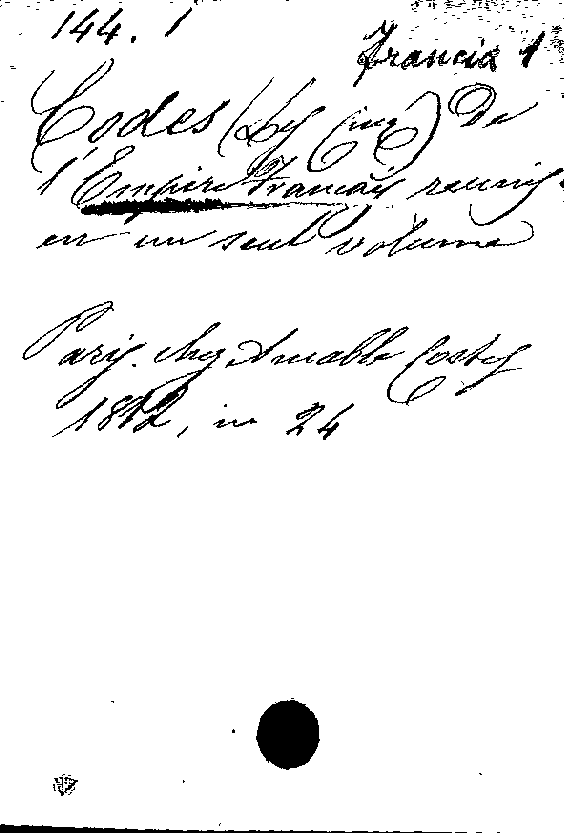 144. 1
Francia 1
Codes (Les Cinq) De
l'Empire Français reunis
en un seul volume
Paris. chez Amable Costes
1812, in 24